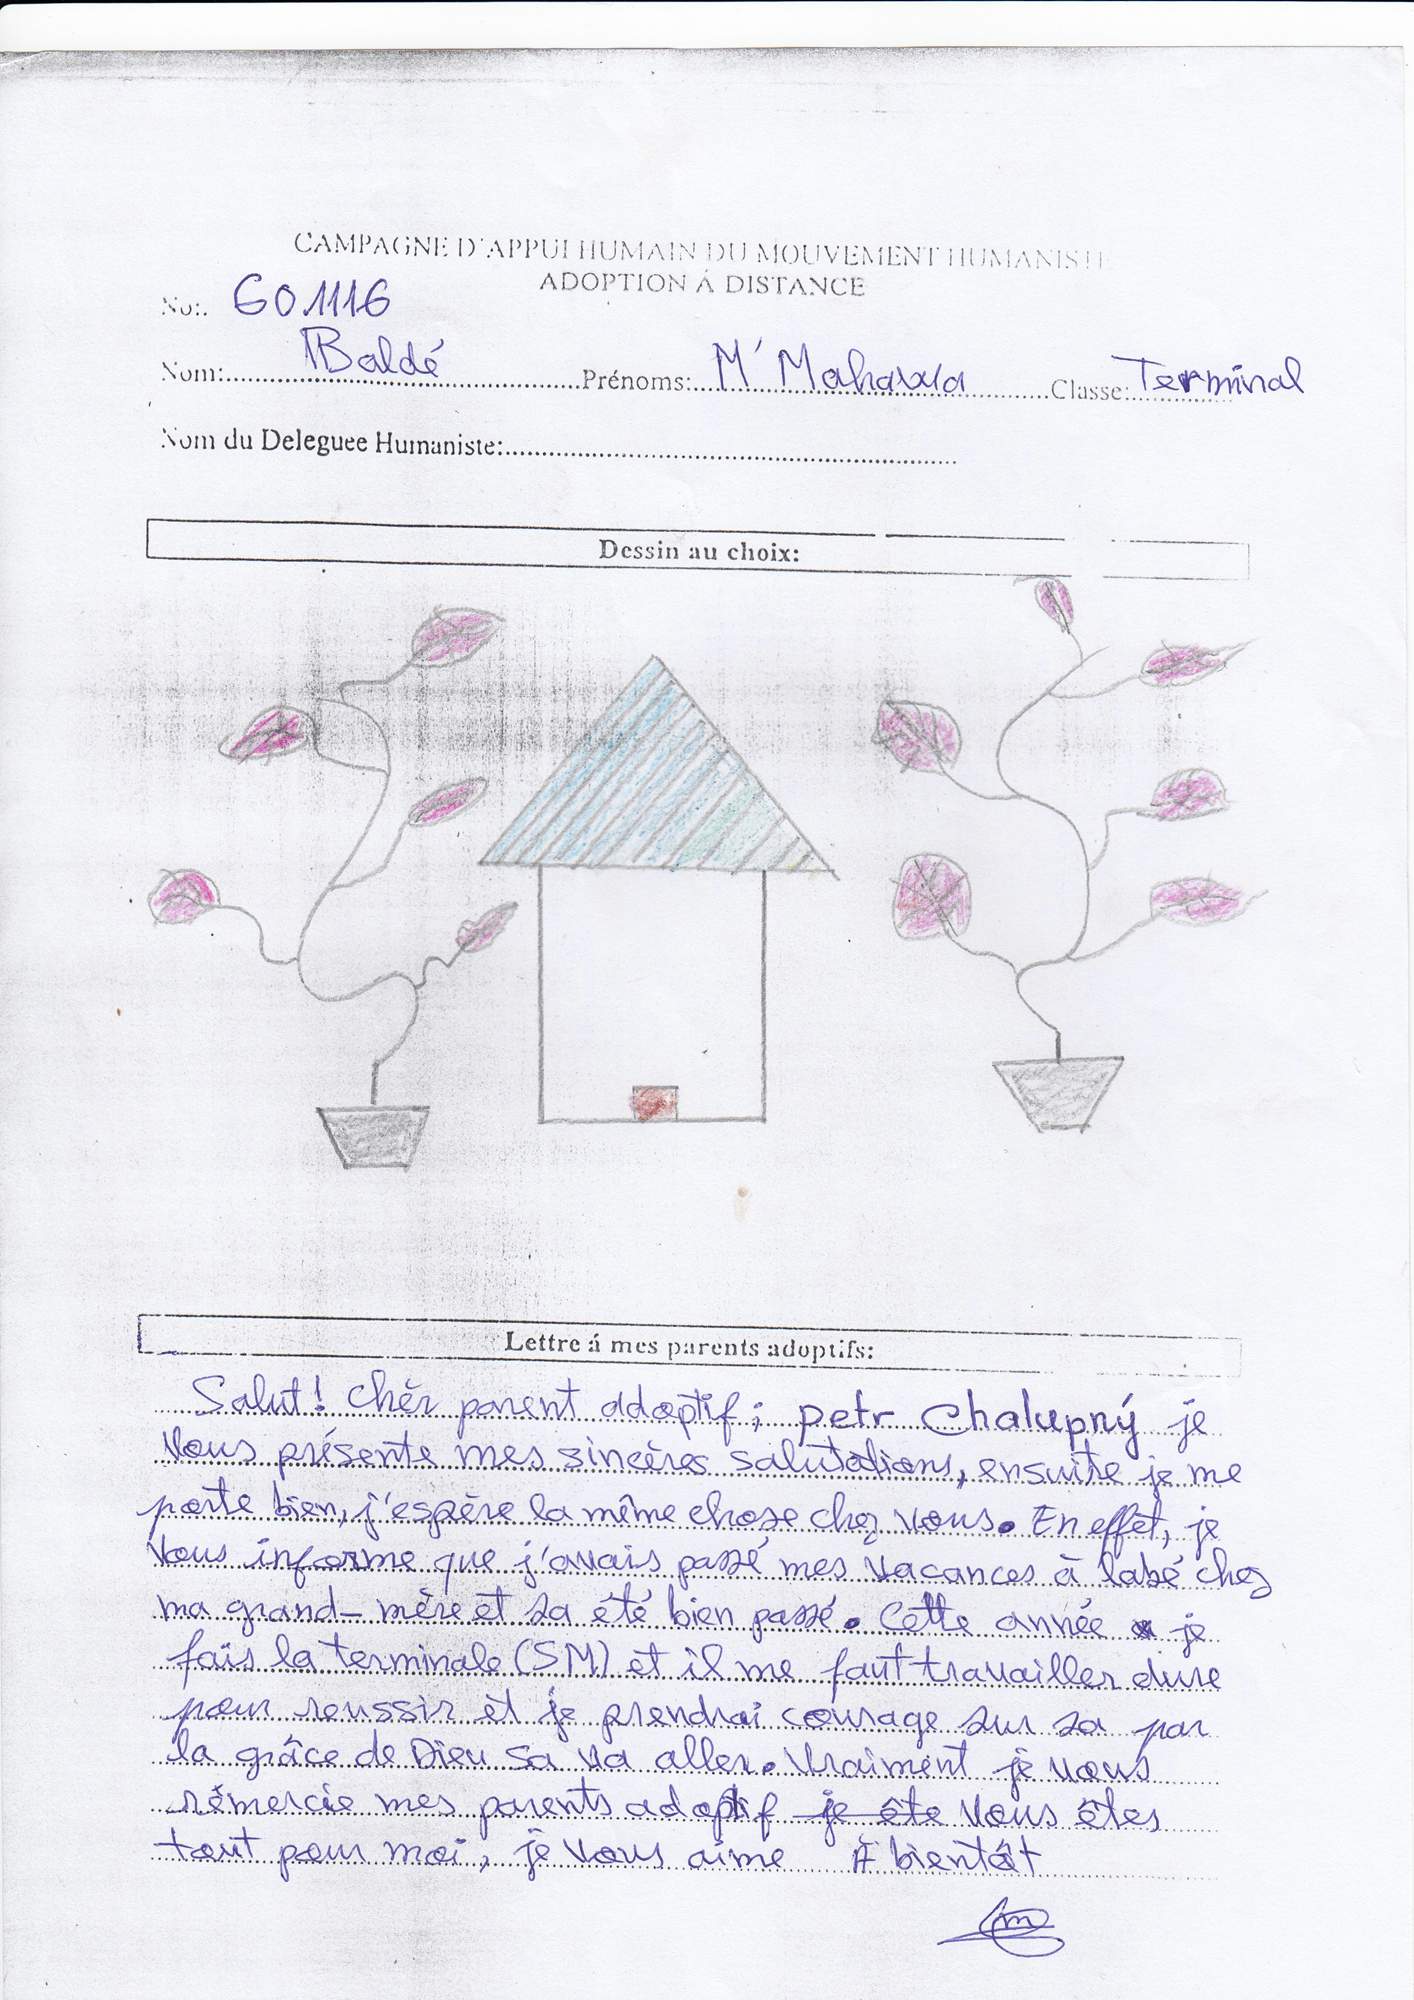 CAMPAGNE D'APPUI HUMAIN DU MOUVEMENT HUMANISTE
ADOPTION Á DISTANCE
No:. G01116
Nom: Baldé Prénoms: M'Mahawa Classe: Terminal
Nom du Deleguee Humaniste:
Dessin au choix:
Lettre á mes parents adoptifs:
Salut! Chèr parent adoptif; petr Chalupný je
Vous présente mes sincères salutations, ensuite je me
porte bien, j'espère la même chose chez vous. En effet, je
Vous informe que j'avais passé mes vacances à labé chez
ma grand-mère et sa été bien passé. Cette année je
fais la terminale (SM) et il me faut travailler dure
pour reussir et je prendrai courage sur sa par
la grâce de Dieu sa va aller. Vraiment je vous
rémercie mes parents adoptif je ête Vous êtes
tout pour moi, je vous aime À bientôt